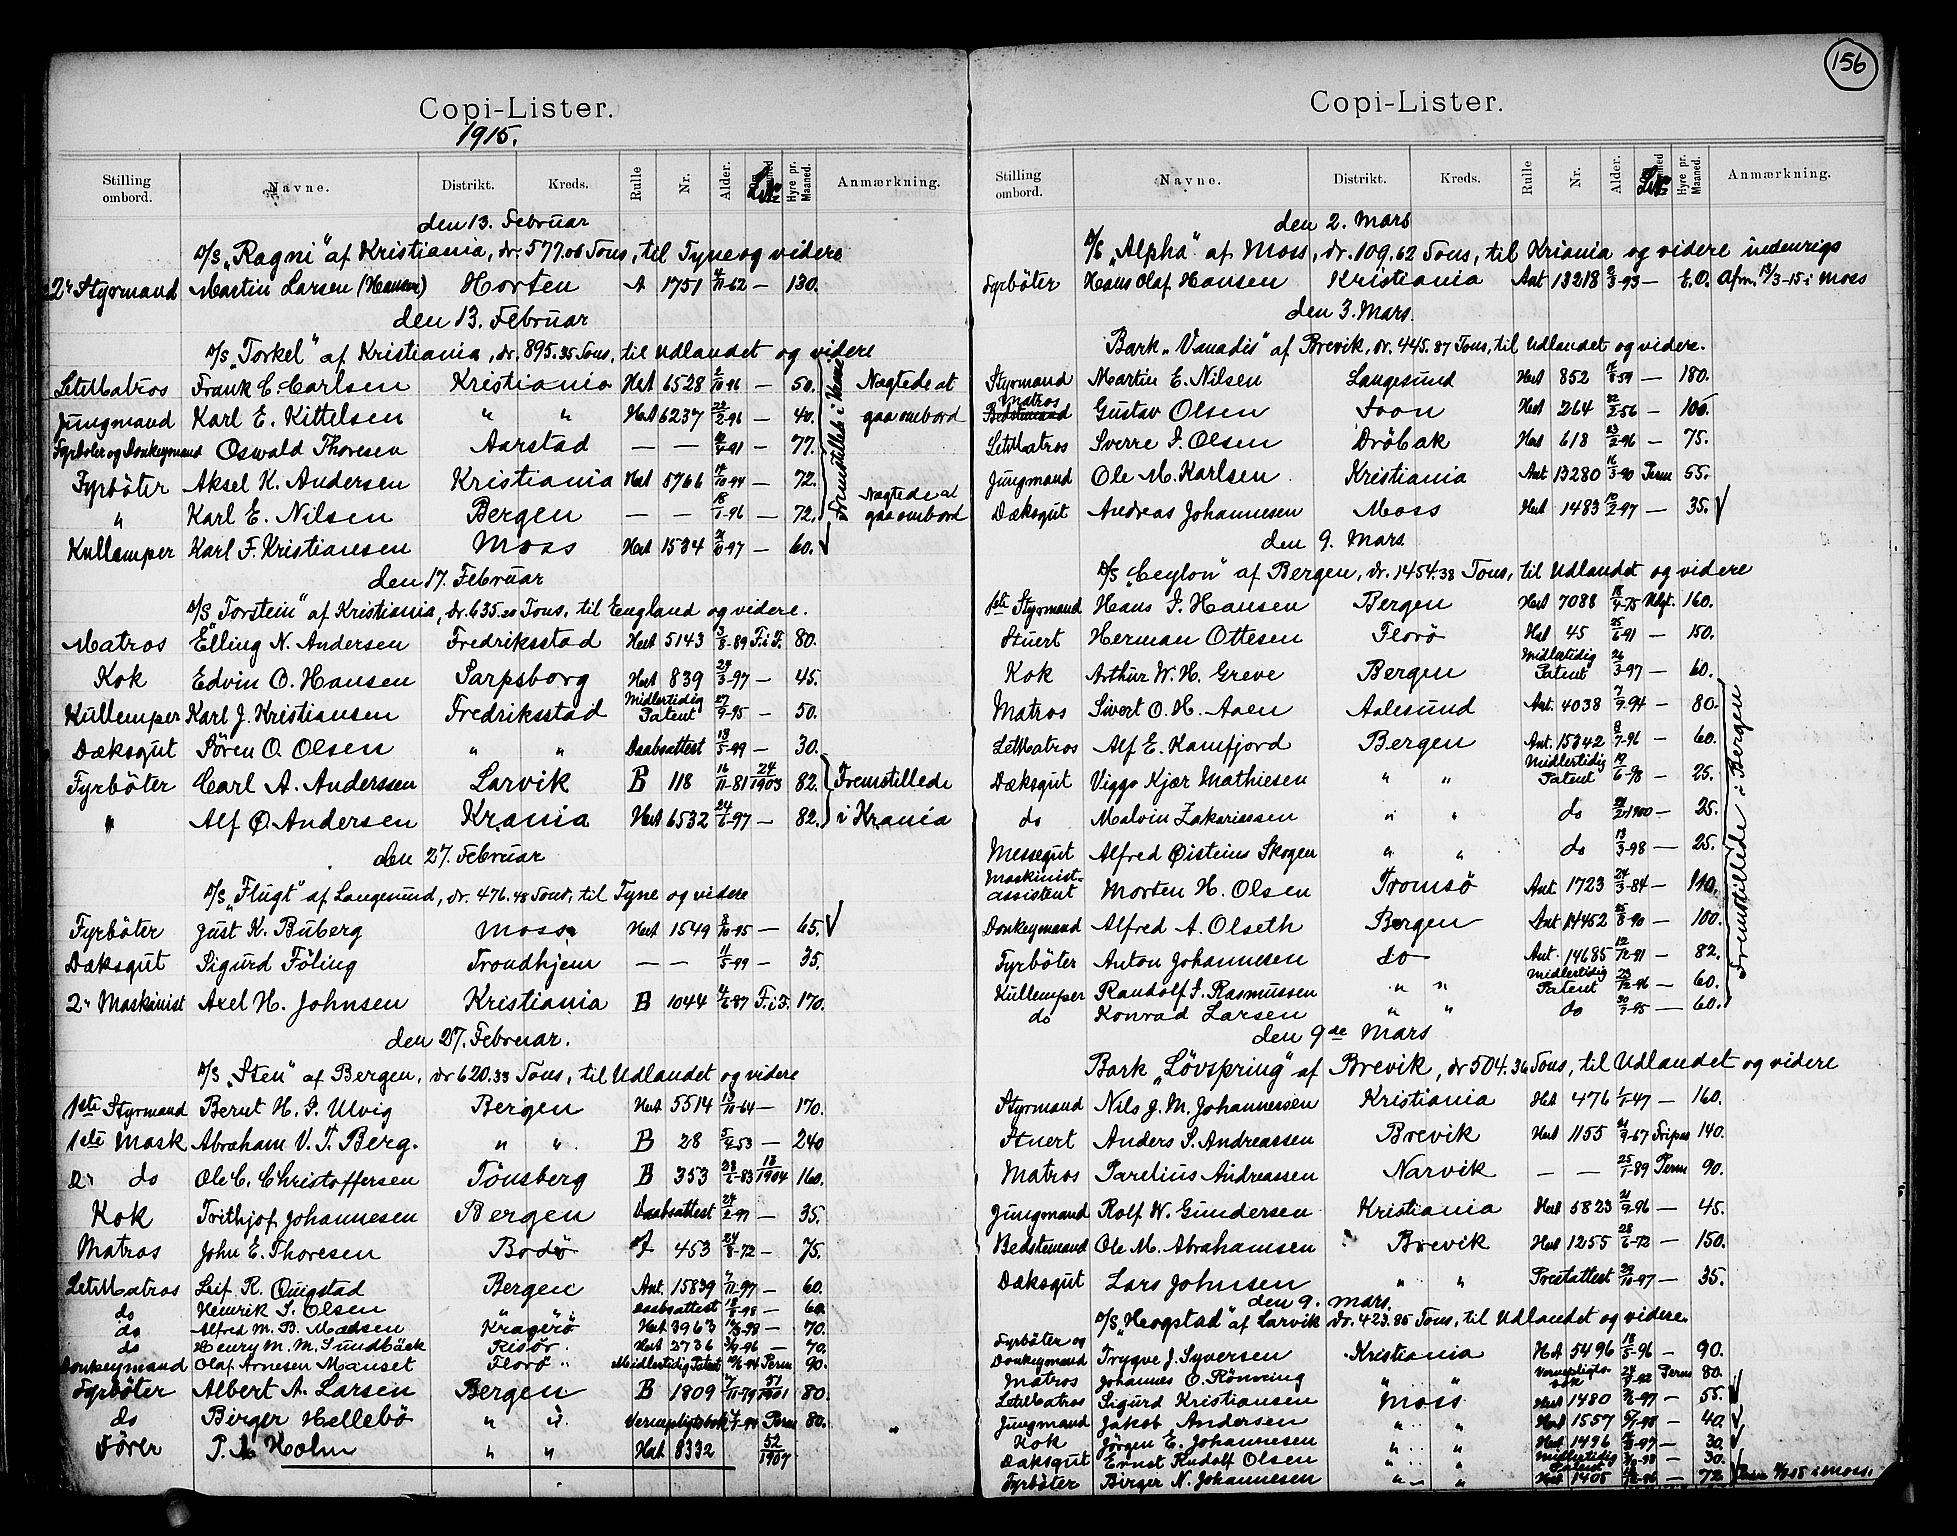 156
Copi-Lister.
1915.
Stilling ombord. Navne. Distrikt. Kreds. Rulle Nr. Alder. Hyre pr. Maaned. Anmærkning.
den 13. Februar
D/S „Ragni" af Kristiania, dr. 577.06 Tons, til Tyne og videre
2n Styrmand Martin Larsen (Hansen) Horten A 1751 -62 — 130.
den 13. Februar
D/S „Torkel" af Kristiania, dr. 895.35 Tons, til Udlandet og videre
LetMatros Frank C. Carlsen Kristiania Hov 6528 /10-96 — 50. Nægtede at
Jungmand Karl E. Kittelsen " " Hov 6237 /2-96 — 40. gaa ombord
Fyrböter og Donkeymand Oswald Thoresen Aarstad — — -91 — 77.
Fyrböter Aksel K. Andersen Kristiania Hov 5766 /10-94 — 72. Nægtede at
" Karl E. Nilsen Bergen — — 18/1-96 — 72. gaa ombord
Kullemper Karl F. Kristiansen Moss Hov 1534 -97 — 60.
den 17. Februar
D/S „Torstein" af Kristiania, dr. 635.20 Tons, til England og videre.
Matros Elling N. Andersen Fredriksstad Hov 5143 3/8-89 F.i.F. 80.
Kok Edvin O. Hansen Sarpsborg Hov 839 29/3-97 — 45.
Kullemper Karl J. Kristiansen Fredriksstad Midlertidig Patent 27/9-95 — 50.
Dæksgut Sören O. Olsen " " Daabsattest 18/5-99 — 30.
Fyrböter Carl A. Anderssen Larvik B 118 16/11-81 24/1903 82. Fremstillede
" Alf O. Andersen Krania Hov 6532 24/6-97 — 82. i Krania
den 27. Februar
D/S „Flugt" af Langesund, dr. 476.48 Tons, til Tyne og videre
Fyrböter Just K. Buberg Moss Hov 1549 /10-95 — 65.
Dæksgut Sigurd Föling Trondhjem — — 11/5-99 — 35.
2n Maskinist Axel H. Johnsen Kristiania B 1044 4/6-87 F.i.F. 170.
den 27. Februar.
D/S „Sten" af Bergen, dr 620.33 Tons, til Udlandet og videre
1ste Styrmand Bernt H. I. Ulvig Bergen Hov 5514 13/10-64 — 170.
1ste Mask Abraham V. T. Berg. " " B 28 5/9-53 — 240
2n do Ole C. Christoffersen Tönsberg B 353 28/6-83 13/1904 160.
Kok Trithjof Johannesen Bergen Daabsattest 24/2-97 — 35.
Matros John E. Thoresen Bodö 453 24/8-72 — 75.
LetMatros Leif R. Quigstad Bergen Ant. 15839 /11-97 — 60.
do Henrik S. Olsen Daabsattest -98 — 60.
do Alfred M. B. Madsen Kragerö Hov 3963 -98 — 70.
do Henry M. M. Sundbäck Risör Hov 2736 -96 — 70.
Donkeymand Olaf Arnesen Manset Florö " Midlertidig Patent -94 Perm 90.
Fyrböter Albert A. Larsen Bergen B 1809 /11-79 51/1901 80.
do Birger Hellebö " " Vernepligtsbok -94 Perm 80.
Förer P. A. Holm " " Hov 8332 52/1907
Copi-Lister.
Stilling ombord. Navne. Distrikt. Kreds. Rulle Nr. Alder. Hyre pr. Maaned. Anmærkning.
den 2. Mars
D/S „Alpha" af Moss, dr. 109.62 Tons, til Kriania og videre indenrigs
Fyrböter Hans Olaf Hansen Kristiania Ant 13218 /3-93 — E.O. Afm. /3-15 i Moss
den 3. Mars.
Bark „Vanadis" af Brevik, dr. 445.87 Tons, til Udlandet og videre.
Styrmand Martin E. Nilsen Langesund Hov 852 /8-59 — 180.
Matros Gustav Olsen Soon Hov 264 22/5-56 — 100.
LetMatros Sverre I. Olsen Dröbak Hov 618 23/2-96 — 75.
Jungmand Ole M. Karlsen Kristiania Ant 13280 16/3-90 Perm 55.
Dæksgut Andreas Johannesen Moss Hov 1483 /2-97 — 35.
den 9. Mars
D/S „Ceylon" af Bergen, dr. 1454.38 Tons, til Udlandet og videre
1ste Styrmand Hans I. Hansen Bergen Hov 7088 18/4-75 Udgt. 160.
Stuert Herman Ottesen Florö Hov 45 25/6-91 — 150.
Kok Arthur W. H. Greve Bergen Midlertidig Patent 26/3-97 — 60.
Matros Sivert O. H. Aaen Aalesund Ant. 4038 7/9-94 — 80.
LetMatros Alf E. Hamfjord Bergen Ant. 15342 8/7-96 — 60.
Dæksgut Viggo Kjær Mathiesen " " Midlertidig Patent 14/6-98 — 25.
do Malvin Zakariassen " " do 1900 — 25.
Messegut Alfred Öisteins Skogen " " do 13/3-98 — 25.
Maskinist-assistent Morten H. Olsen Tromsö Ant. 1723 24/3-84 — 110.
Donkeymand Alfred A. Olseth Bergen Ant 14452 25/8-90 — 100.
Fyrböter Anton Johannesen do Ant. 14685 12/12-91 — 82.
Kullemper Randolf I. Rasmussen " " Midlertidig Patent 23/12-96 — 60.
do Konrad Larsen " " do -95 — 60.
Fremstillede i Bergen
den 9de Mars
Bark „Lövspring" af Brevik, dr 504.36 Tons, til Udlandet og videre
Styrmand Nils J. M. Johannessen Kristiania Hov 476 -47 — 160.
Stuert Anders S. Andreassen Brevik Hov 1155 /9-67 Fripas 140.
Matros Parelius Andreassen Narvik — — 25/1-89 Perm 90.
Jungmand Rolf W. Gundersen Kristiania Hov 5823 21/9-96 — 45.
Bedstemand Ole M. Abrahamsen Brevik Hov 1255 28/6-72 — 150.
Dæksgut Lars Johnsen " " Prestattest /10-97 — 35.
den 9. Mars.
D/S „Hogstad" af Larvik dr. 423.85 Tons, til Udlandet og videre.
Fyrböter og Donkeymand Trygve J. Syversen Kristiania Hov 5496 18/5-96 — 90.
Matros Johannes O. Rönning " " -92 Perm 80.
LetMatros Sigurd Kristiansen Moss Hov 1480 -97 — 55.
Jungmand Jakob Andersen " " Hov 1557 -98 — 40.
Kok Jörgen E. Johannesen " " Hov 1496 -97 — 30.
Daksgut Ernst Rudolf Olsen " " Midlertidig Patent -98 — 30.
Fyrböter Birger N. Johannesen " " Hov 1405 -96 — 72. i Moss.